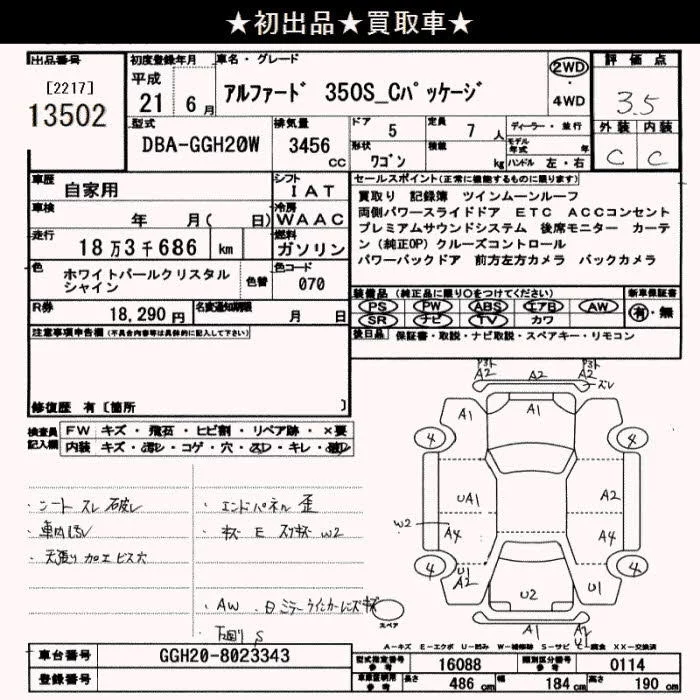 ★初出品★買取車★
出品番号
[2217]
13502
初度登録年月
平成
21 6月
車名・グレード
アルファード 350S_Cパッケージ
2WD
・
4WD
評価点
3.5
外装 内装
C C
型式
DBA-GGH20W
排気量
3456
cc
ドア 5
定員 7 人
形状 ワゴン
積載 kg
ディーラー・並行
モデル年式 年
ハンドル 左・右
車歴 自家用
シフト IAT
車検 年 月( 日)
冷房 WAAC
走行 18万3千686 km
燃料 ガソリン
色 ホワイトパールクリスタル
シャイン
色替
色コード 070
R券 18,290円
名変通知期限 月 日
セールスポイント(正常に機能するものに限ります)
買取り 記録簿 ツインムーンルーフ
両側パワースライドドア ETC ACCコンセント
プレミアムサウンドシステム 後席モニター カーテ
ン(純正OP)クルーズコントロール
パワーバックドア 前方左方カメラ バックカメラ
装備品(純正品に限り○をつけてください)
新車保証書
PS PW ABS エアB AW
有・無
SR ナビ TV カワ
後日品 保証書・取説・ナビ取説・スペアキー・リモコン
注意事項申告欄(不具合内容等は具体的に記入して下さい)
修復歴 有〔箇所 〕
検査員
記入欄
FW キズ・飛石・ヒビ割・リペア跡・×要
内装 キズ・汚レ・コゲ・穴・スレ・キレ・破レ
・シート スレ 破レ
・車内ハシ
・天張り 加工 ビス穴
・エンドパネル 歪
・キズ E スリキズ W2
・AW
・下廻り S
A2 A2 A2
スレ
A1 A1
4 4
UA1 A2
W2 A4 A4
4 4
U1
A2 U2 U1
A1 A2
スペア
A-キズ E-エクボ U-凹み W-補修跡 S-サビ C-腐食 XX-交換済
車台番号 GGH20-8023343
登録番号
型式指定番号
参考
16088
類別区分番号
参考
0114
車庫証明用
参考
長さ 486 cm
幅 184 cm
高さ 190 cm